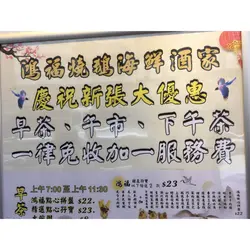 鴻福燒鵝海鮮酒家
慶祝新張大優惠
早茶、午市、下午茶
一律免收加一服務費
早茶
上午7:00至上午11:30
鴻福點心拼盤 $22.
精選點心孖寶 $23.
鴻福 $23